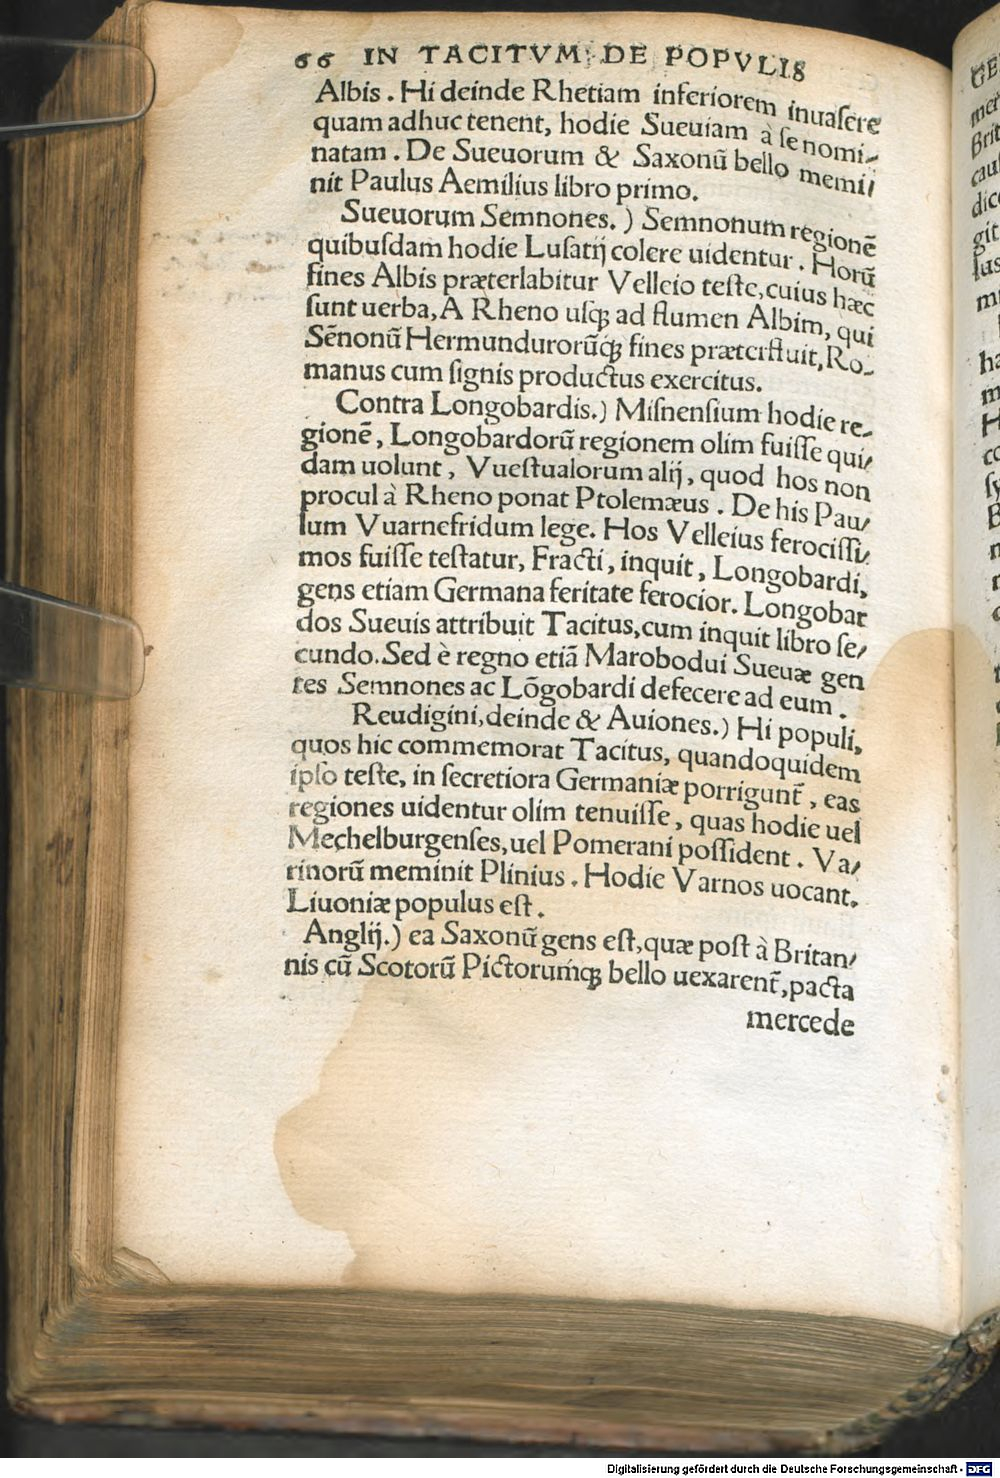 66 IN TACITVM DE POPVLIS
Albis. Hi deinde Rhetiam inferiorem inuaſere
quam adhuc tenent, hodie Sueuiam à ſe nomi-
natam. De Sueuorum & Saxonū bello memi/
nit Paulus Aemilius libro primo.
Sueuorum Semnones.) Semnonum regionē
quibuſdam hodie Luſatij colere uidentur. Horū
fines Albis præterlabitur Velleio teſte, cuius hæc
ſunt uerba, A Rheno uſqꝫ ad flumen Albim, qui
Sēnonū Hermundurorūqꝫ fines præterfluit, Ro-
manus cum ſignis productus exercitus.
Contra Longobardis.) Miſnenſium hodie re-
gionē, Longobardorū regionem olim fuiſſe qui/
dam uolunt, Vueſtualorum alij, quod hos non
procul à Rheno ponat Ptolemæus. De his Pau/
lum Vuarnefridum lege. Hos Velleius ferociſſi/
mos fuiſſe teſtatur, Fracti, inquit, Longobardi,
gens etiam Germana feritate ferocior. Longobar
dos Sueuis attribuit Tacitus, cum inquit libro ſe/
cundo. Sed è regno etiā Marobodui Sueuæ gen
tes Semnones ac Lōgobardi defecere ad eum.
Reudigini, deinde & Auiones.) Hi populi,
quos hic commemorat Tacitus, quandoquidem
ipſo teſte, in ſecretiora Germaniæ porrigunt̄, eas
regiones uidentur olim tenuiſſe, quas hodie uel
Mechelburgenſes, uel Pomerani poſſident. Va/
rinorū meminit Plinius. Hodie Varnos uocant.
Liuoniæ populus eſt.
Anglij.) ea Saxonū gens eſt, quæ poſt à Britan/
nis cū Scotorū Pictorumqꝫ bello uexarent̄, pacta
mercede
Digitalisierung gefördert durch die Deutsche Forschungsgemeinschaft - DFG